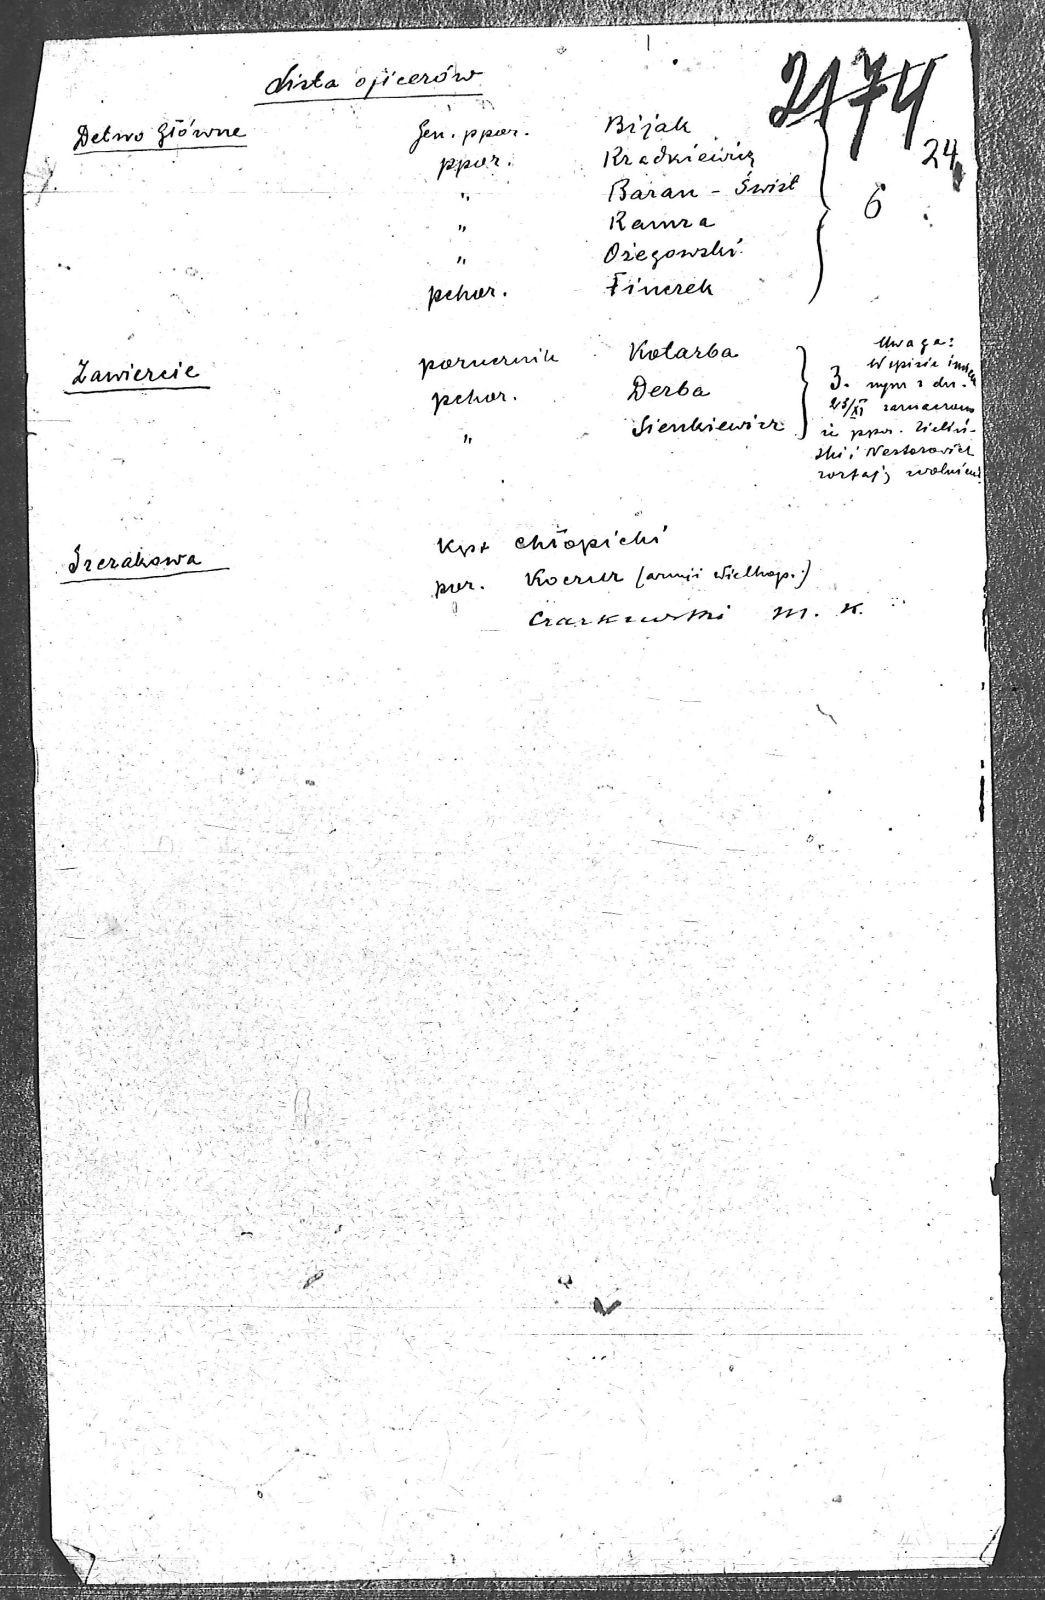 2174
24
Lista oficerów
Detwo Główne
Gen. ppor. Bijak
ppor. Kradkiewicz
" Baran - Świst
" Kamza
" Ożegowski
pchor. Finczek
6
Zawiercie
porucznik Kotarba
pchor. Derba
" Sienkiewicz
3.
Uwaga:
W spisie imien
nym z dn.
23/XI zaznaczono
że ppor. Zieliń-
ski i Nestorowicz
zostają zwolnieni
Szczakowa
Kpt Chłopicki
por. Koczur (armii wielkop.)
Czarkowski M. K.